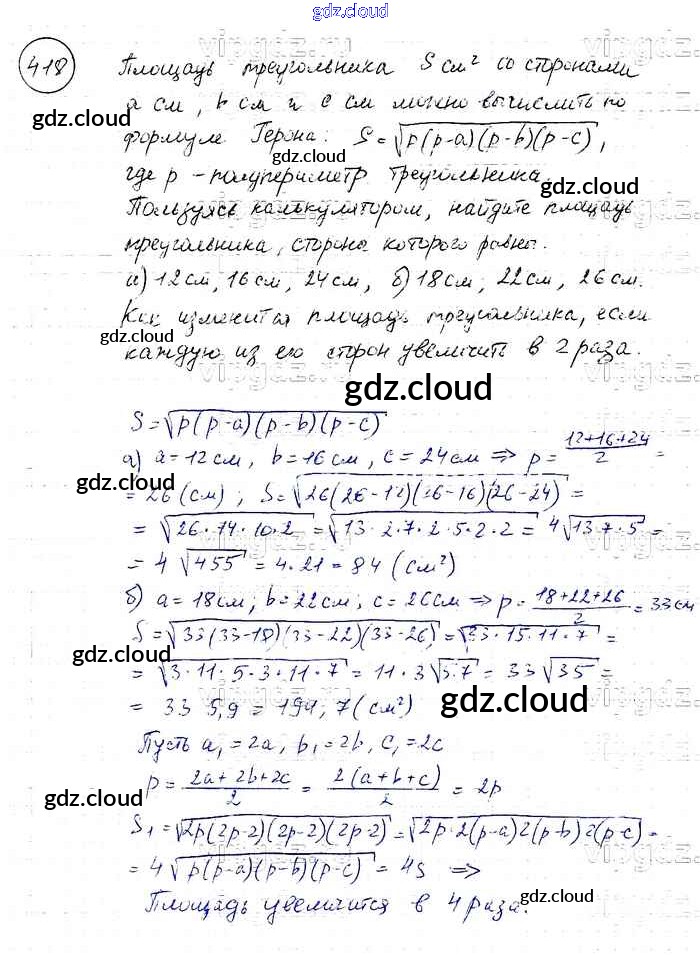 gdz.cloud
418 Площадь треугольника S см² со сторонами
a см, b см и c см можно вычислить по
gdz.cloud
формуле Герона: S=√p(p-a)(p-b)(p-c),
gdz.cloud
где p – полупериметр треугольника.
gdz.cloud
Пользуясь калькулятором, найдите площадь
треугольника, стороны которого равны.
gdz.cloud
а) 12 см, 16 см, 24 см, б) 18 см, 22 см, 26 см.
Как изменится площадь треугольника, если
gdz.cloud
каждую из его сторон увеличить в 2 раза.
gdz.cloud
S=√p(p-a)(p-b)(p-c)
а) a=12 см, b=16 см, c=24 см ⇒ p= (12+16+24)/2 =
gdz.cloud
= 26 (см); S=√26(26-12)(26-16)(26-24) =
gdz.cloud
= √26·14·10·2 = √13·2·7·2·5·2·2 = 4√13·7·5 =
= 4√455 = 4·21 = 84 (см²)
б) a=18 см; b=22 см; c=26 см ⇒ p= (18+22+26)/2 = 33 см
gdz.cloud
S=√33(33-18)(33-22)(33-26) = √33·15·11·7 =
gdz.cloud
= √3·11·5·3·11·7 = 11·3√5·7 = 33√35 =
= 33 5,9 = 194,7 (см²)
gdz.cloud
Пусть a₁=2a, b₁=2b, c₁=2c
p= (2a+2b+2c)/2 = 2(a+b+c)/2 = 2p
gdz.cloud
gdz.cloud
S₁=√2p(2p-2)(2p-2)(2p-2) = √2p·2(p-a)2(p-b)2(p-c) =
gdz.cloud
= 4√p(p-a)(p-b)(p-c) = 4S ⇒
Площадь увеличится в 4 раза.
gdz.cloud